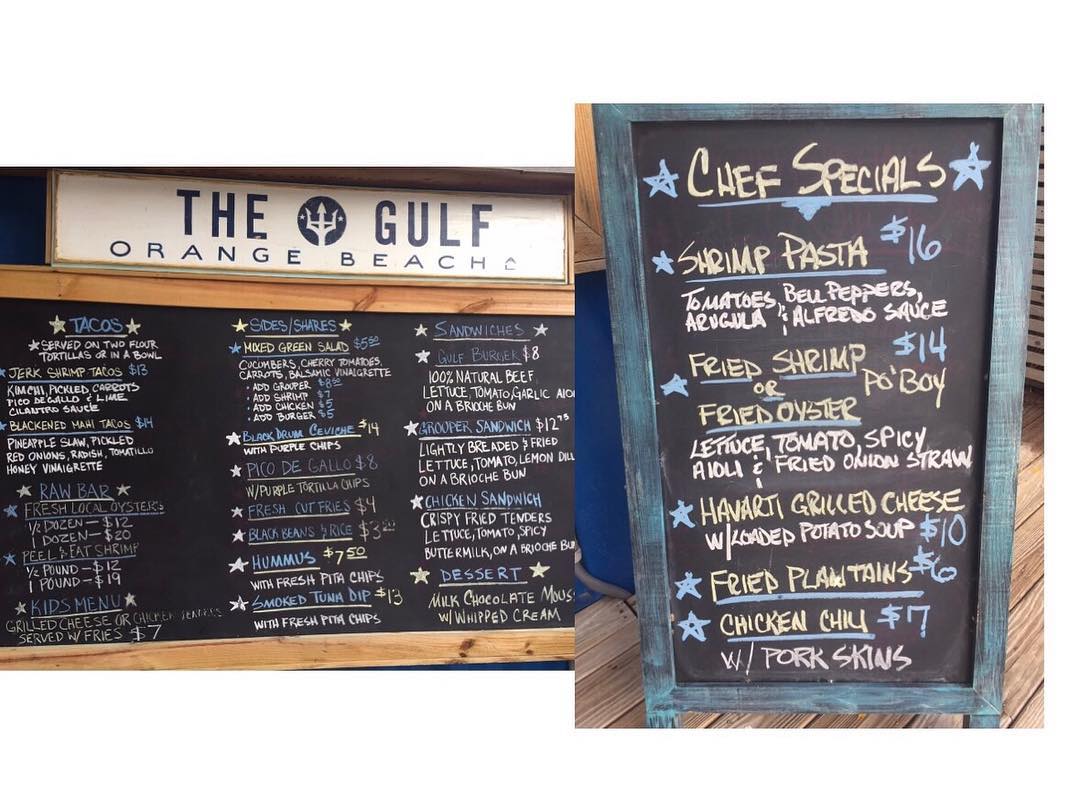 THE GULF
ORANGE BEACH
TACOS
SERVED ON TWO FLOUR
TORTILLAS OR IN A BOWL
JERK SHRIMP TACOS $13
KIMCHI, PICKLED CARROTS
PICO DE GALLO & LIME
CILANTRO SAUCE
BLACKENED MAHI TACOS $14
PINEAPPLE SLAW, PICKLED
RED ONIONS, RADISH, TOMATILLO
HONEY VINAIGRETTE
RAW BAR
FRESH LOCAL OYSTERS
1/2 DOZEN - $12
1 DOZEN - $20
PEEL & EAT SHRIMP
1/2 POUND - $12
1 POUND - $19
KIDS MENU
GRILLED CHEESE OR CHICKEN TENDERS
SERVED W/ FRIES $7
SIDES/SHARES
MIXED GREEN SALAD $5.50
CUCUMBERS, CHERRY TOMATOES,
CARROTS, BALSAMIC VINAIGRETTE
• ADD GROUPER $8.50
• ADD SHRIMP $7
• ADD CHICKEN $5
• ADD BURGER $5
BLACK DRUM CEVICHE $14
WITH PURPLE CHIPS
PICO DE GALLO $8
W/PURPLE TORTILLA CHIPS
FRESH CUT FRIES $4
BLACK BEANS & RICE $3
HUMMUS $7.50
WITH FRESH PITA CHIPS
SMOKED TUNA DIP $13
WITH FRESH PITA CHIPS
SANDWICHES
GULF BURGER $8
100% NATURAL BEEF
LETTUCE, TOMATO, GARLIC AIOLI
ON A BRIOCHE BUN
GROUPER SANDWICH $12.75
LIGHTLY BREADED & FRIED
LETTUCE, TOMATO, LEMON DILL
ON A BRIOCHE BUN
CHICKEN SANDWICH
CRISPY FRIED TENDERS
LETTUCE, TOMATO, SPICY
BUTTERMILK, ON A BRIOCHE BUN
DESSERT
MILK CHOCOLATE MOUS
W/WHIPPED CREAM
CHEF SPECIALS
SHRIMP PASTA $16
TOMATOES, BELL PEPPERS,
ARUGULA & ALFREDO SAUCE
FRIED SHRIMP $14
OR PO'BOY
FRIED OYSTER
LETTUCE, TOMATO, SPICY
AIOLI & FRIED ONION STRAW
HAVARTI GRILLED CHEESE
W/LOADED POTATO SOUP $10
FRIED PLANTAINS $6
CHICKEN CHILI $7
W/ PORK SKINS